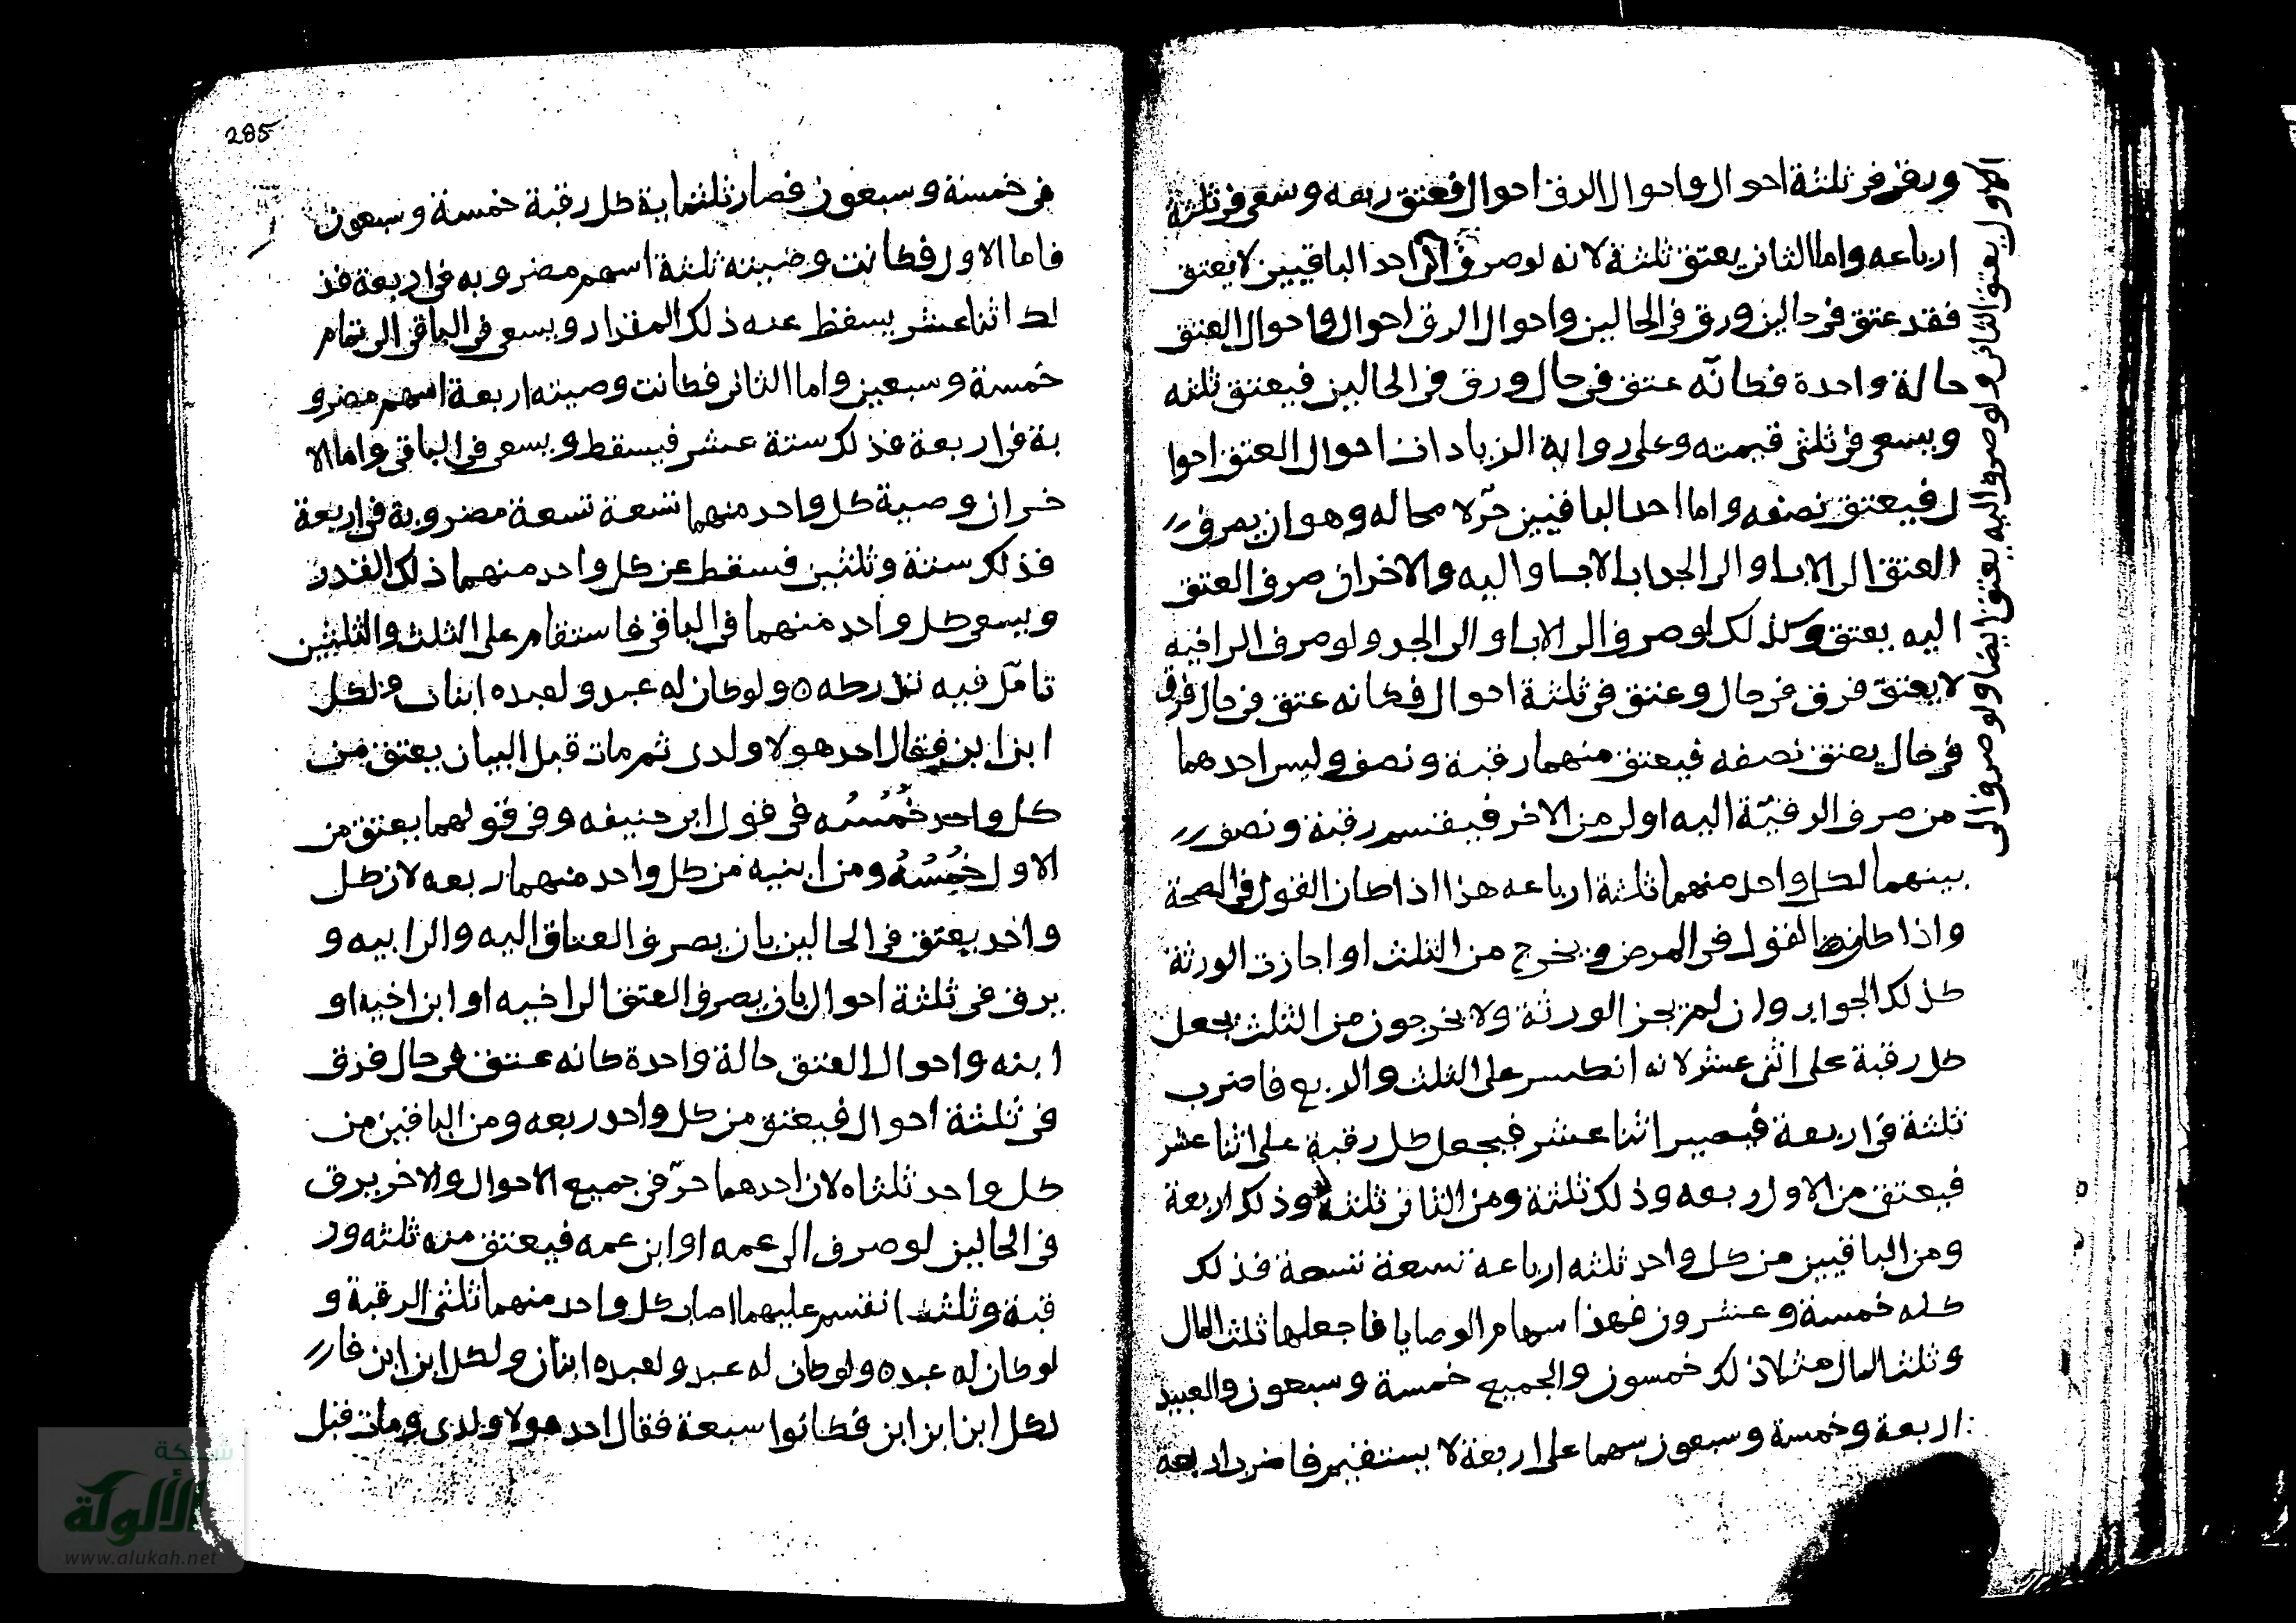 ورق فى ثلثة احوال واحوال الرق احوال فعتق ربعه وسعى فى ثلثة
ارباعه واما الثانى يعتق ثلثة لانه لو صرف الى احد الباقيين لا يعتق
فقد عتق فى حالين ورق فى الحالين واحوال الرق احوال واحوال العتق
حالة واحدة فكانّه عتق فى حال ورق فى الحالين فيعتق ثلثه
ويسعى فى ثلثى قيمته وعلى رواية الزيادات احوال العتق احوا
ل فيعتق نصفه واما احد الباقيين حرّ لا محاله وهو ان يصرف
العتق الى الاب او الى الجد اب الاب او اليه والاخر ان صرف العتق
اليه يعتق وكذلك لو صرف الى الاب او الى الجد ولو صرف الى اخيه
لا يعتق فرق فى حال وعتق فى ثلثة احوال فكانه عتق فى حال فرق
فى حال يعتق نصفه فيعتق منهما رقبة ونصف وليس احدهما
من صرف الرقيّة اليه اولى من الاخر فيقسم رقبة ونصف
بينهما لكل واحد منهما ثلثة ارباعه هذا اذا كان القول فى الصحة
واذا كان القول فى المرض ويخرج من الثلث او اجازت الورثة
كذلك الجواب وان لم يجز الورثة ولا يخرجون من الثلث يجعل
كل رقبة على اثنى عشر لانه انكسر على الثلث والربع فاضرب
ثلثة فى اربعة فيصير اثنا عشر فيجعل كل رقبة على اثنا عشر
فيعتق من الاول ربعه وذلك ثلثة ومن الثانى ثلثه وذلك اربعة
ومن الباقيين من كل واحد ثلثه ارباعه تسعة تسعة فذلك
كله خمسة وعشرون فهذا سهام الوصايا فاجعلها ثلث المال
وثلثا المال مثلا ذلك خمسون والجميع خمسة وسبعون والعبيد
اربعة وخمسة وسبعون سهما على اربعة لا يستقيم فاضرب اربعة
الاول يعتق الثانى ولو صرف اليه يعتق ايضا ولو صرف الى
285
فى خمسة وسبعون فصار ثلثماية كل رقبة خمسة وسبعون
فاما الاول فكانت وصيته ثلثة اسهم مضروبه فى اربعة فذ
لك اثنا عشر يسقط عنه ذلك المقدار ويسعى فى الباقى الى تمام
خمسة وسبعين واما الثانى فكانت وصيته اربعة اسهم مضرو
بة فى اربعة فذلك ستة عشر فيسقط ويسعى فى الباقى واما الا
خران وصية كل واحد منهما تسعة تسعة مضروبة فى اربعة
فذلك ستة وثلثين فسقط عن كل واحد منهما ذلك القدر
ويسعى كل واحد منهما فى الباقى فاستقام على الثلث والثلثين
تامّل فيه تدركه ٥ ولو كان له عبد ولعبده ابنان ولكل
ابن ابن فقال احد هولا ولدى ثم مات قبل البيان يعتق من
كل واحد خُمُسُه فى قول ابى حنيفه وفى قولهما يعتق من
الاول خُمُسُه ومن ابنيه من كل واحد منهما ربعه لان كل
واحد يعتق فى الحالين بان يصرف العتاق اليه والى ابيه و
يرق فى ثلثة احوال بان يصرف العتق الى اخيه او ابن اخيه او
ابنه واحوال العتق حالة واحدة كانه عتق فى حال فرق
فى ثلثة احوال فيعتق من كل واحد ربعه ومن الباقين من
كل واحد ثلثاه لان احدهما حرّ فى جميع الاحوال والاخر يرق
فى الحالين لو صرف الى عمه او ابن عمه فيعتق منه ثلثه ور
قبة وثلثه انقسم عليهما اصاب كل واحد منهما ثلثى الرقبة و
لو كان له عبده ولو كان له عبد ولعبده ابنان ولكل ابن ابن فار
لكل ابن ابن ابن فكانوا سبعة فقال احد هولا ولدى ومات قبل
شبكة
الألوكة
www.alukah.net